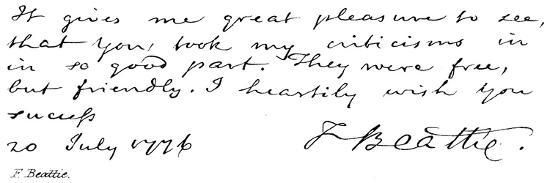 It gives me great pleasure to see,
that you, took my criticisms in
in so good part. They were free,
but friendly. I heartily wish you
success
20 July 1776 J Beattie.
F. Beattie.